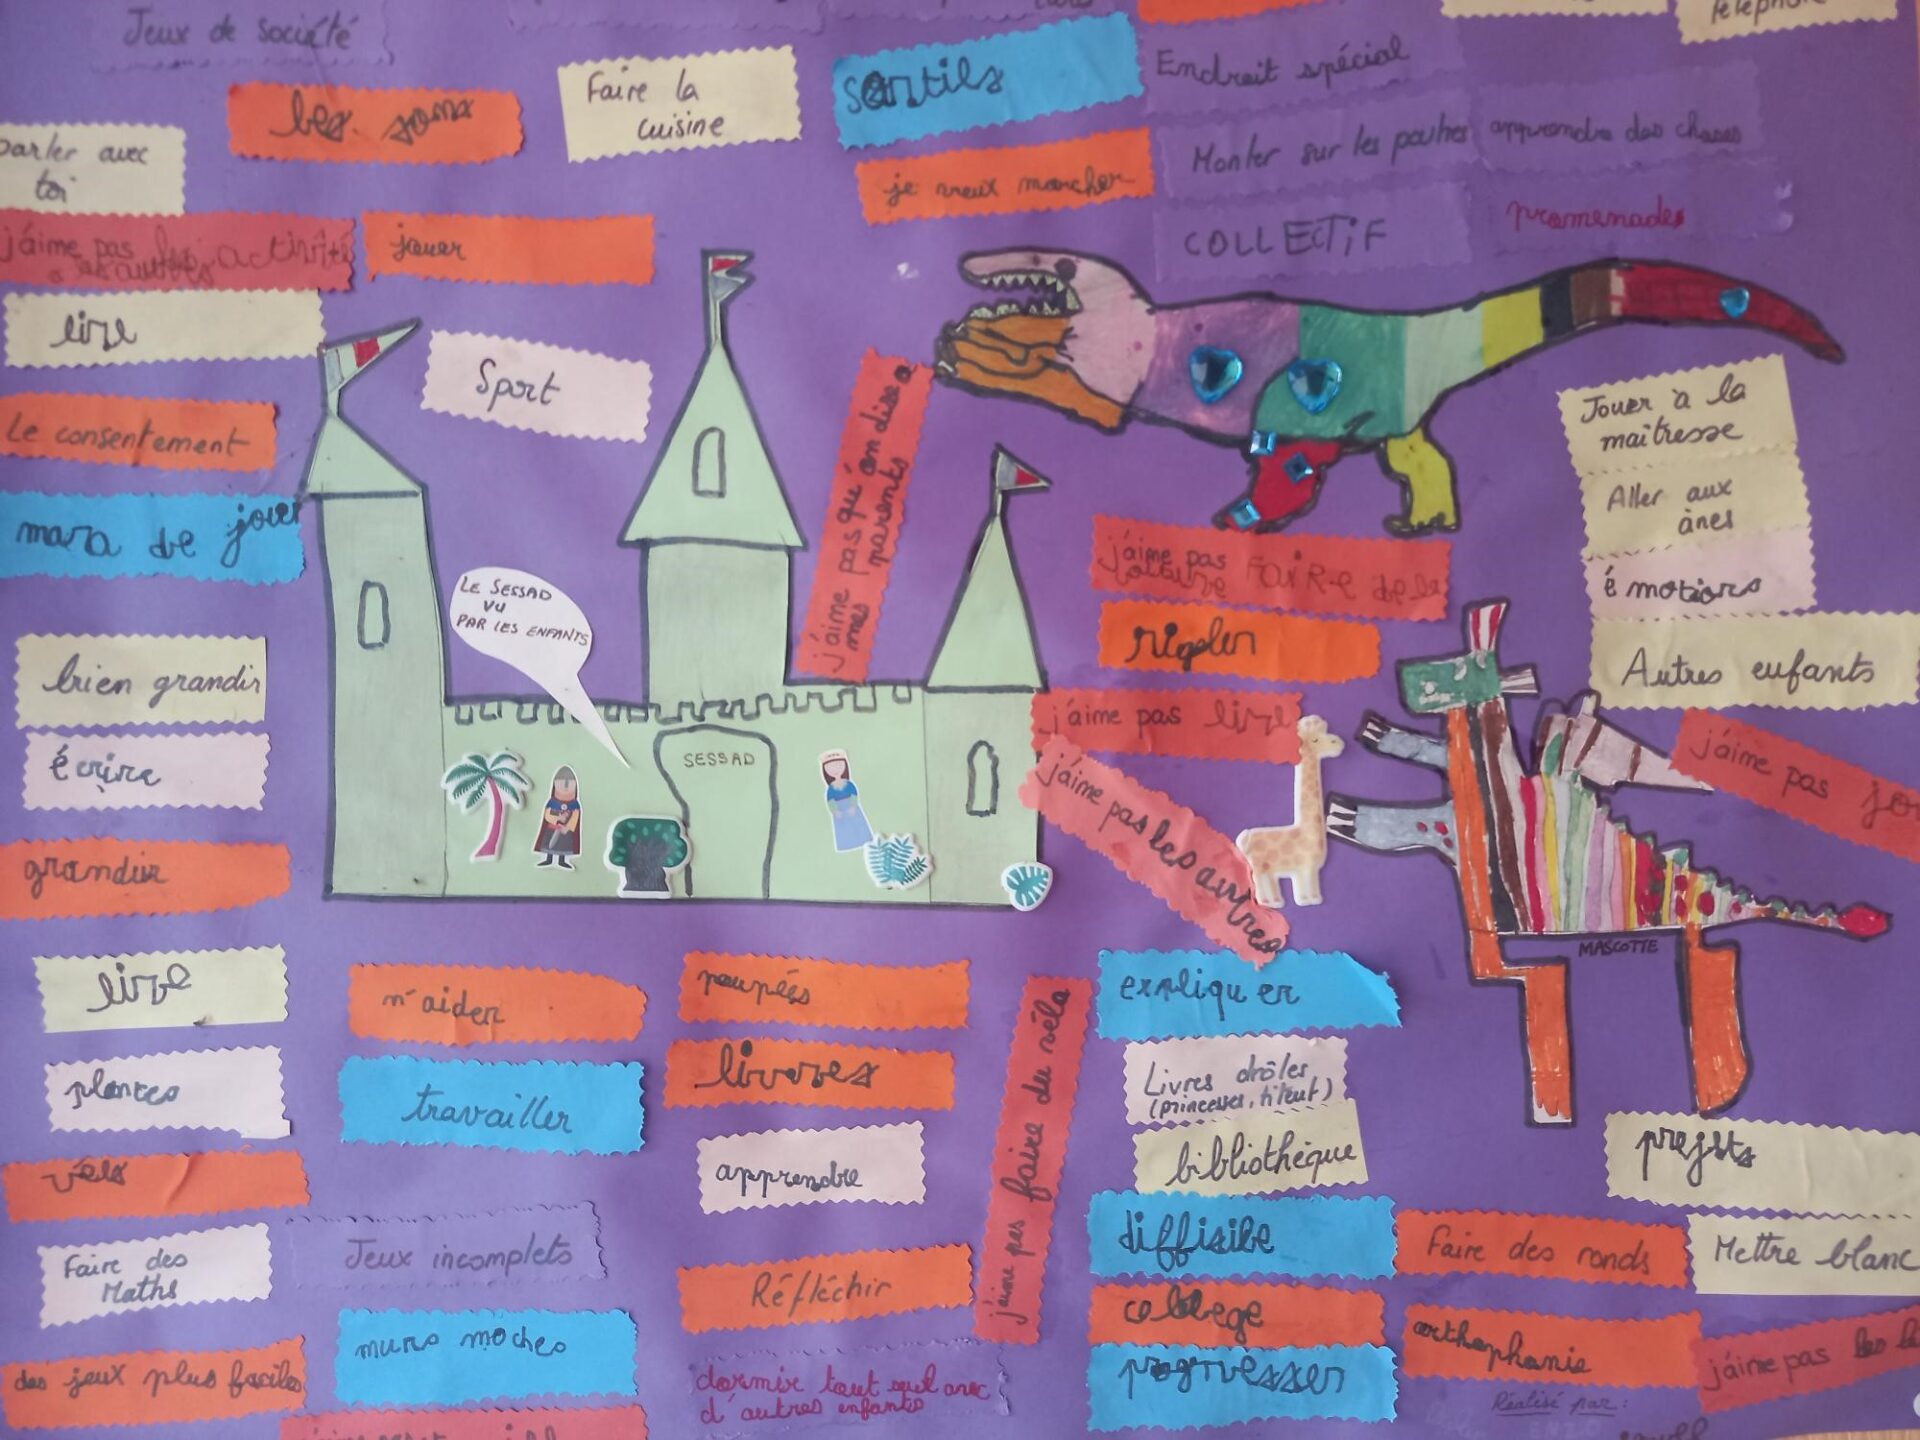 Jeux de société
les sons
Faire la
cuisine
sortils
Endroit spécial
parler avec
toi
je veux marcher
Monter sur les poutres
apprendre des choses
j'aime pas les activité
jouer
COLLECTiF
promenades
lire
Sport
Le consentement
Jouer à la
maîtresse
mara de jouer
Aller aux
ânes
j'aime pas qu'on dise a
mes parents
j'aime pas FaiR-e de la
voiture
émotions
LE SESSAD
VU
PAR LES ENFANTS
rigoler
bien grandir
Autres enfants
j'aime pas lire
écrire
SESSAD
j'aime pas les autres
j'aime pas
grandir
MASCOTTE
lire
m'aider
poupées
expliquer
plantes
travailler
livres
Livres drôles
(princesses, titeuf)
j'aime pas faire du vélo
vélo
apprendre
bibliothèque
projets
Faire des
Maths
Jeux incomplets
Réfléchir
diffisile
Faire des ronds
Mettre blanc
collège
murs moches
orthophonie
j'aime pas
des jeux plus faciles
dormir tout seul avec
d'autres enfants
progresser
Réalisé par: